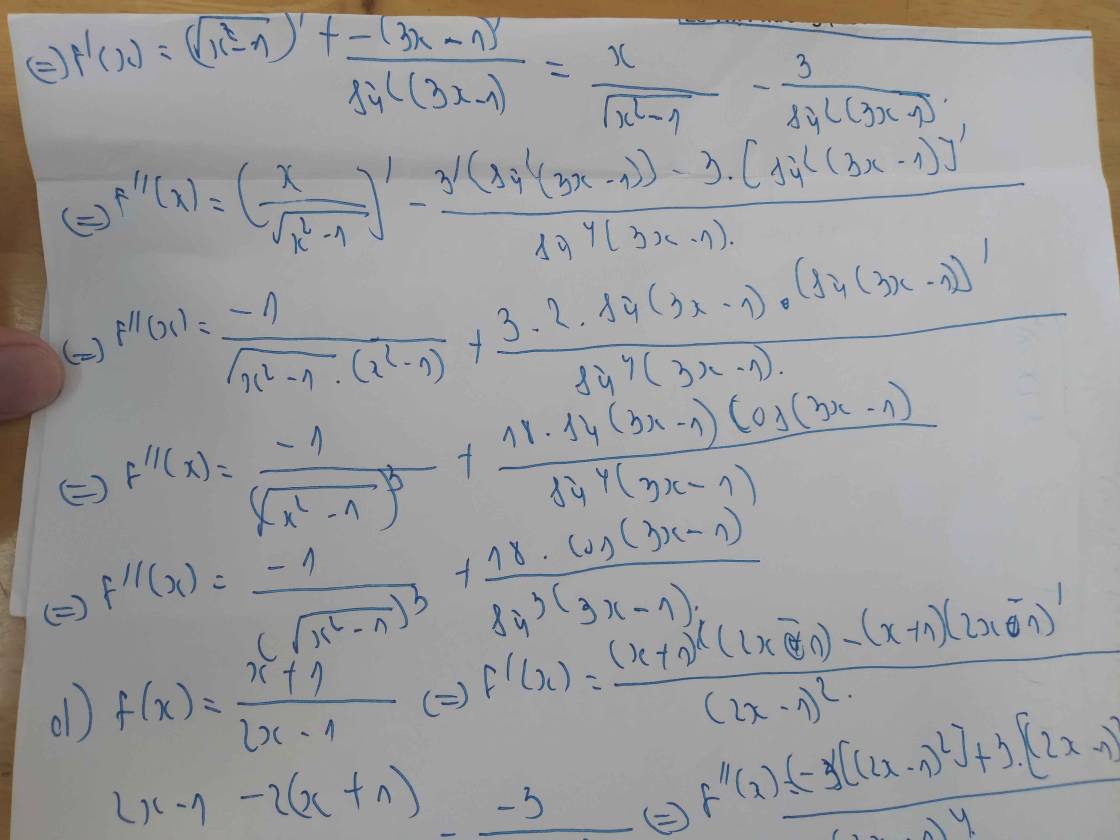 (=) f'(x) = (√(x²-1))' + -(3x-1)'/sin²(3x-1) = x/√(x²-1) - 3/sin²(3x-1).
(=) f''(x) = (x/√(x²-1))' - 3'(sin²(3x-1)) - 3.[sin²(3x-1)]'/sin⁴(3x-1).
(=) f''(x) = -1/√(x²-1).(x²-1) + 3.2.sin(3x-1).(sin(3x-1))'/sin⁴(3x-1).
(=) f''(x) = -1/(√(x²-1))³ + 18.sin(3x-1)cos(3x-1)/sin⁴(3x-1)
(=) f''(x) = -1/(√(x²-1))³ + 18.cos(3x-1)/sin³(3x-1).
d) f(x) = x+1/2x-1 (=) f'(x) = (x+1)'(2x-1)-(x+1)(2x-1)'/(2x-1)².
2x-1 -2(x+1) = -3 (=) f''(x) =